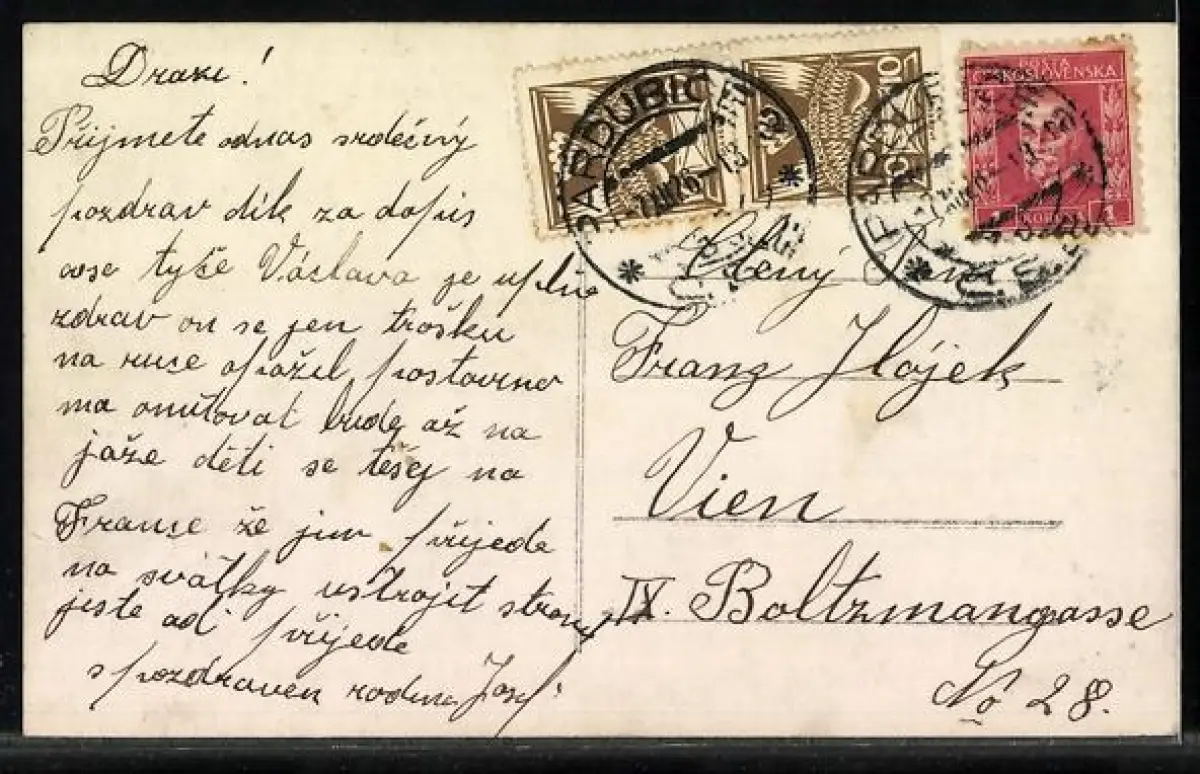 Drazí!
Přijmete odnas srdečný
pozdrav dík za dopis
tyče Václava je uplně
zdrav on se jen trošku
na ruce opážil
ma bude až na
jaře děti se těšej na
France že jim přijede
na svátky ustrojit strom
jeste ať přijede
s pozdravem rodina Josef
PARDUBICE 2
10
10
POŠTA
ČESKOSLOVENSKÁ
1 KORUNA 1
PARDUBICE
Ctený Pan
Franz Hájek
Vien
IX. Boltzmangasse
No 28.